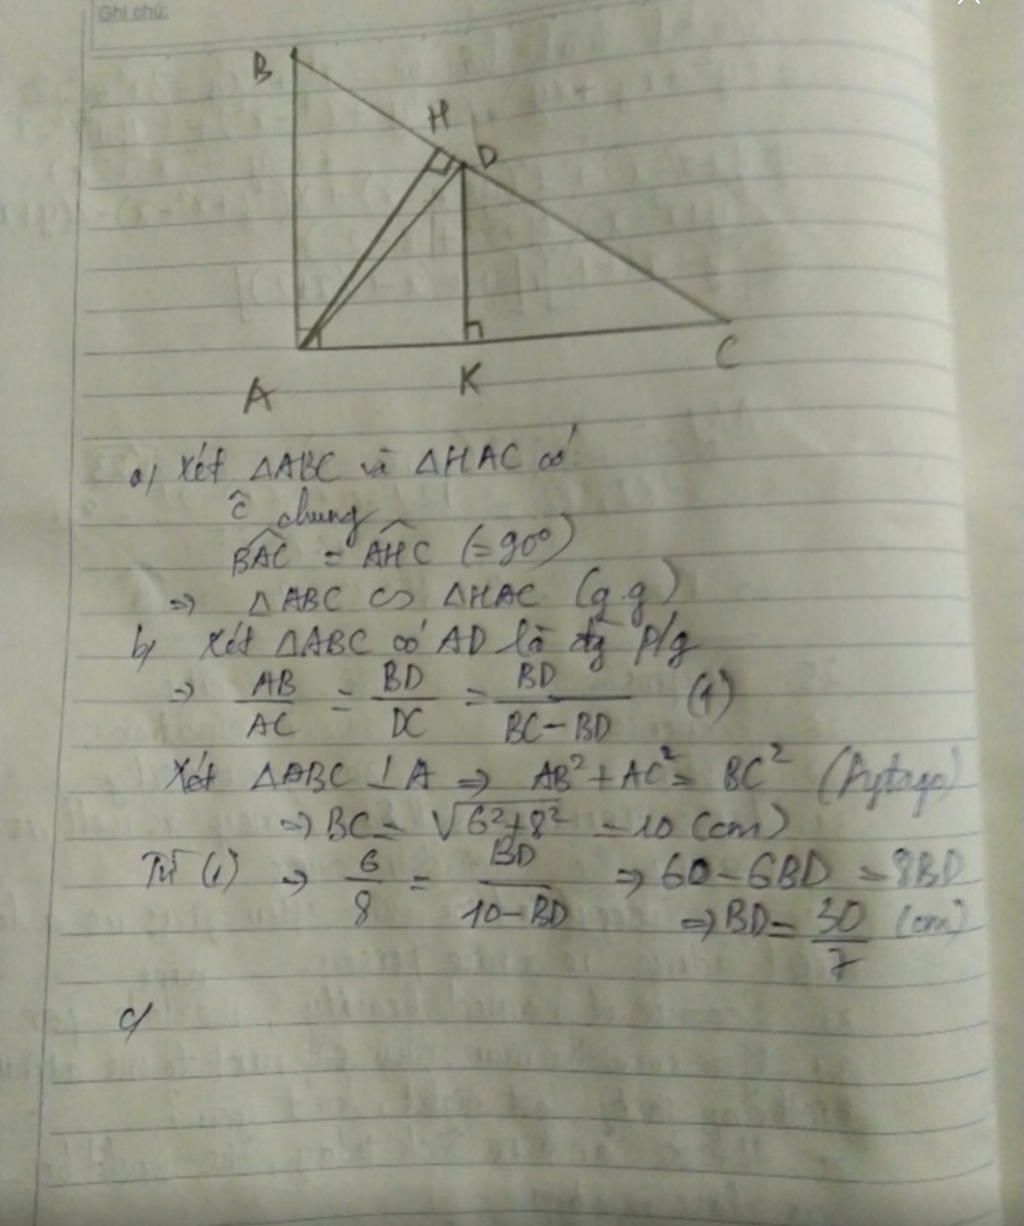 Ghi chú:
B
H
D
A
K
C
a) Xét ΔABC và ΔHAC có
Ĉ chung
BAC^ = AHC^ (=90°)
=> ΔABC ∽ ΔHAC (g.g)
b) Xét ΔABC có AD là đg p/g
=> AB/AC = BD/DC = BD/(BC-BD) (1)
Xét ΔABC ⊥ A => AB² + AC² = BC² (Pytago)
=> BC = √(6²+8²) = 10 (cm)
Từ (1) => 6/8 = BD/(10-BD) => 60-6BD = 8BD
=> BD = 30/7 (cm)
c)